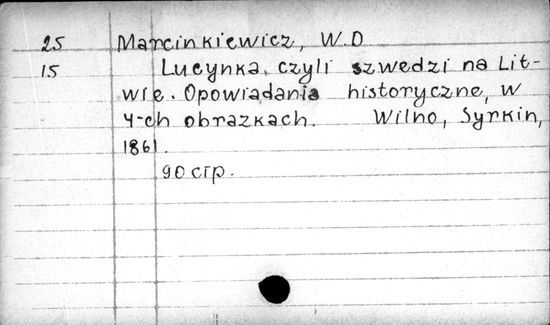 25 Marcinkiewicz, W.D
15 Lucynka, czyli szwedzi na Lit-
wie. Opowiadania historyczne, w
4-ch obrazkach. Wilno, Syrkin,
1861.
90 стр.